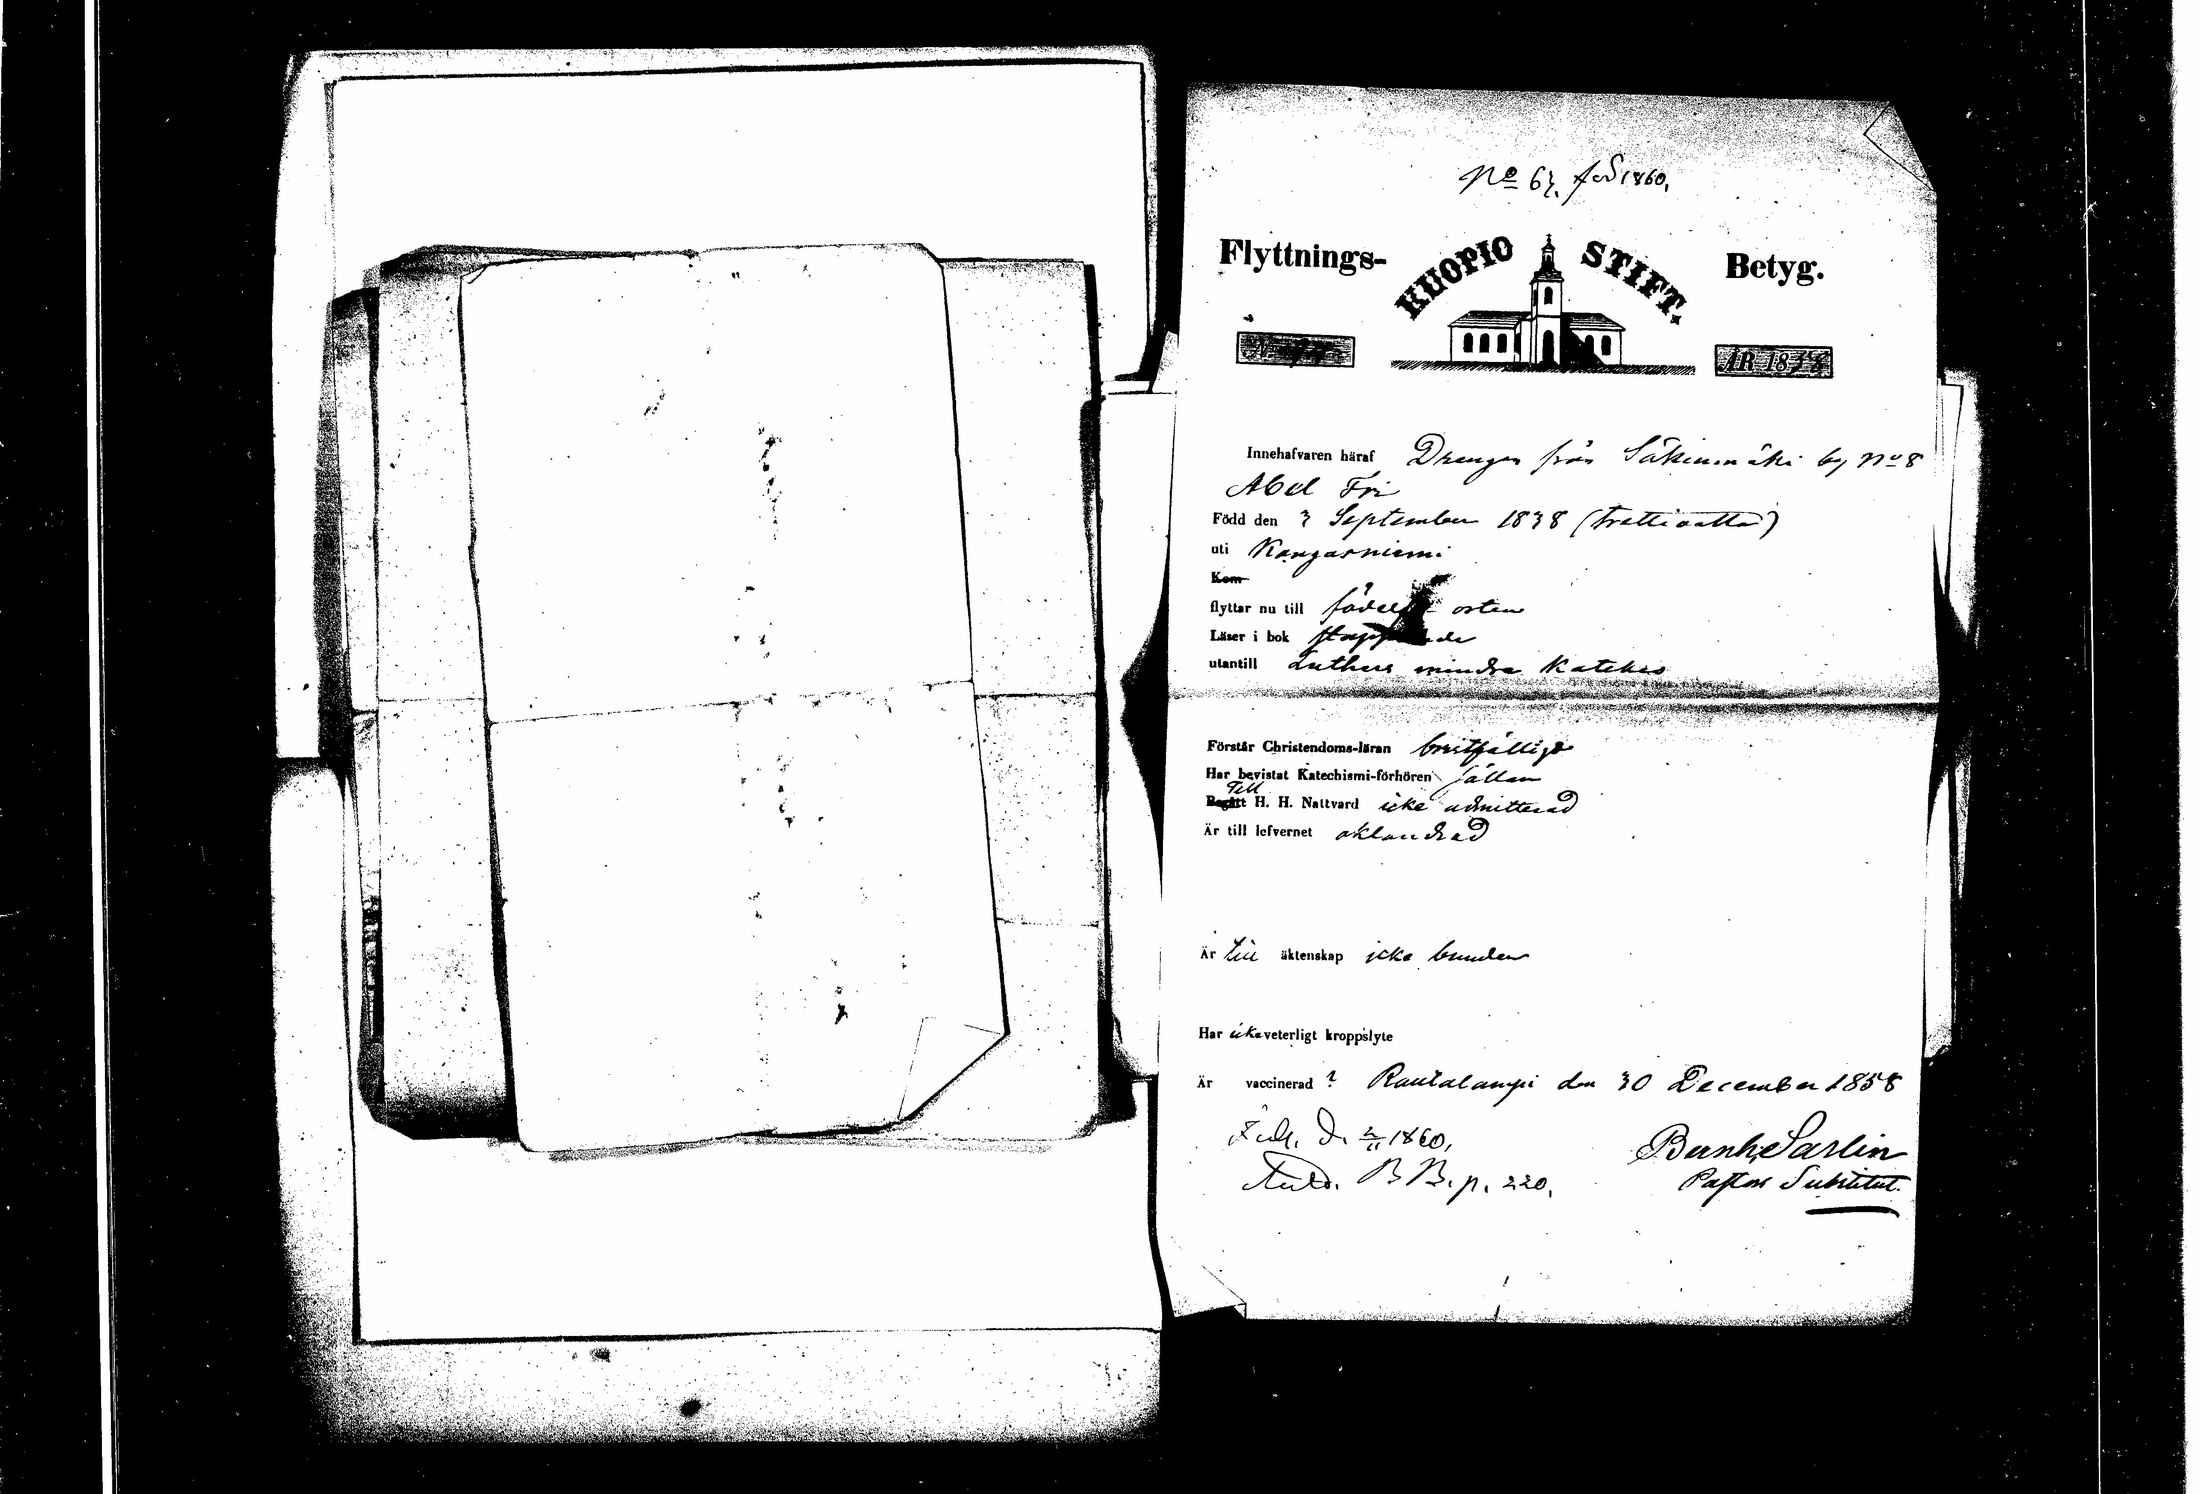 No 63. fol 1860.
Flyttnings- KUOPIO STIFT. Betyg.
N. ÅR 1858
Innehafvaren häraf Drengen från Säkinmäki by No 8
Abel Fri
Född den 3 September 1838 (trettioåtta)
uti Kangasniemi
Kom
flyttar nu till födelse orten
Läser i bok stappande
utantill Luthers mindre Kateches
Förstår Christendoms-läran bristfälligt
Har bevistat Katechismi-förhören sällan
Till
Begått H. H. Nattvard icke admitterad
Är till lefvernet oklandrad
Är till äktenskap icke bunden
Har icke veterligt kroppslyte
Är vaccinerad ? Rautalampi den 30 December 1858
d. 2/11 1860.
Bernh. Sarlin
B B. p. 220.
Pastors Substitut.